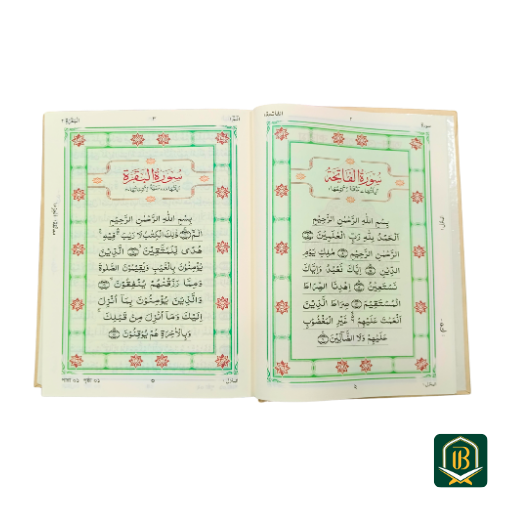 سُورَةُ الْفَاتِحَةِ
بِسْمِ اللّٰهِ الرَّحْمٰنِ الرَّحِيْمِ
اَلْحَمْدُ لِلّٰهِ رَبِّ الْعٰلَمِيْنَ
الرَّحْمٰنِ الرَّحِيْمِ مٰلِكِ يَوْمِ
الدِّيْنِ اِيَّاكَ نَعْبُدُ وَاِيَّاكَ
نَسْتَعِيْنُ اِهْدِنَا الصِّرَاطَ
الْمُسْتَقِيْمَ صِرَاطَ الَّذِيْنَ
اَنْعَمْتَ عَلَيْهِمْ غَيْرِ الْمَغْضُوْبِ
عَلَيْهِمْ وَلَا الضَّآلِّيْنَ
سُورَةُ الْبَقَرَةِ
بِسْمِ اللّٰهِ الرَّحْمٰنِ الرَّحِيْمِ
الٓمّٓ ذٰلِكَ الْكِتٰبُ لَا رَيْبَ فِيْهِ
هُدًى لِّلْمُتَّقِيْنَ الَّذِيْنَ
يُؤْمِنُوْنَ بِالْغَيْبِ وَيُقِيْمُوْنَ الصَّلٰوةَ
وَمِمَّا رَزَقْنٰهُمْ يُنْفِقُوْنَ
وَالَّذِيْنَ يُؤْمِنُوْنَ بِمَآ اُنْزِلَ
اِلَيْكَ وَمَآ اُنْزِلَ مِنْ قَبْلِكَ
وَبِالْاٰخِرَةِ هُمْ يُوْقِنُوْنَ